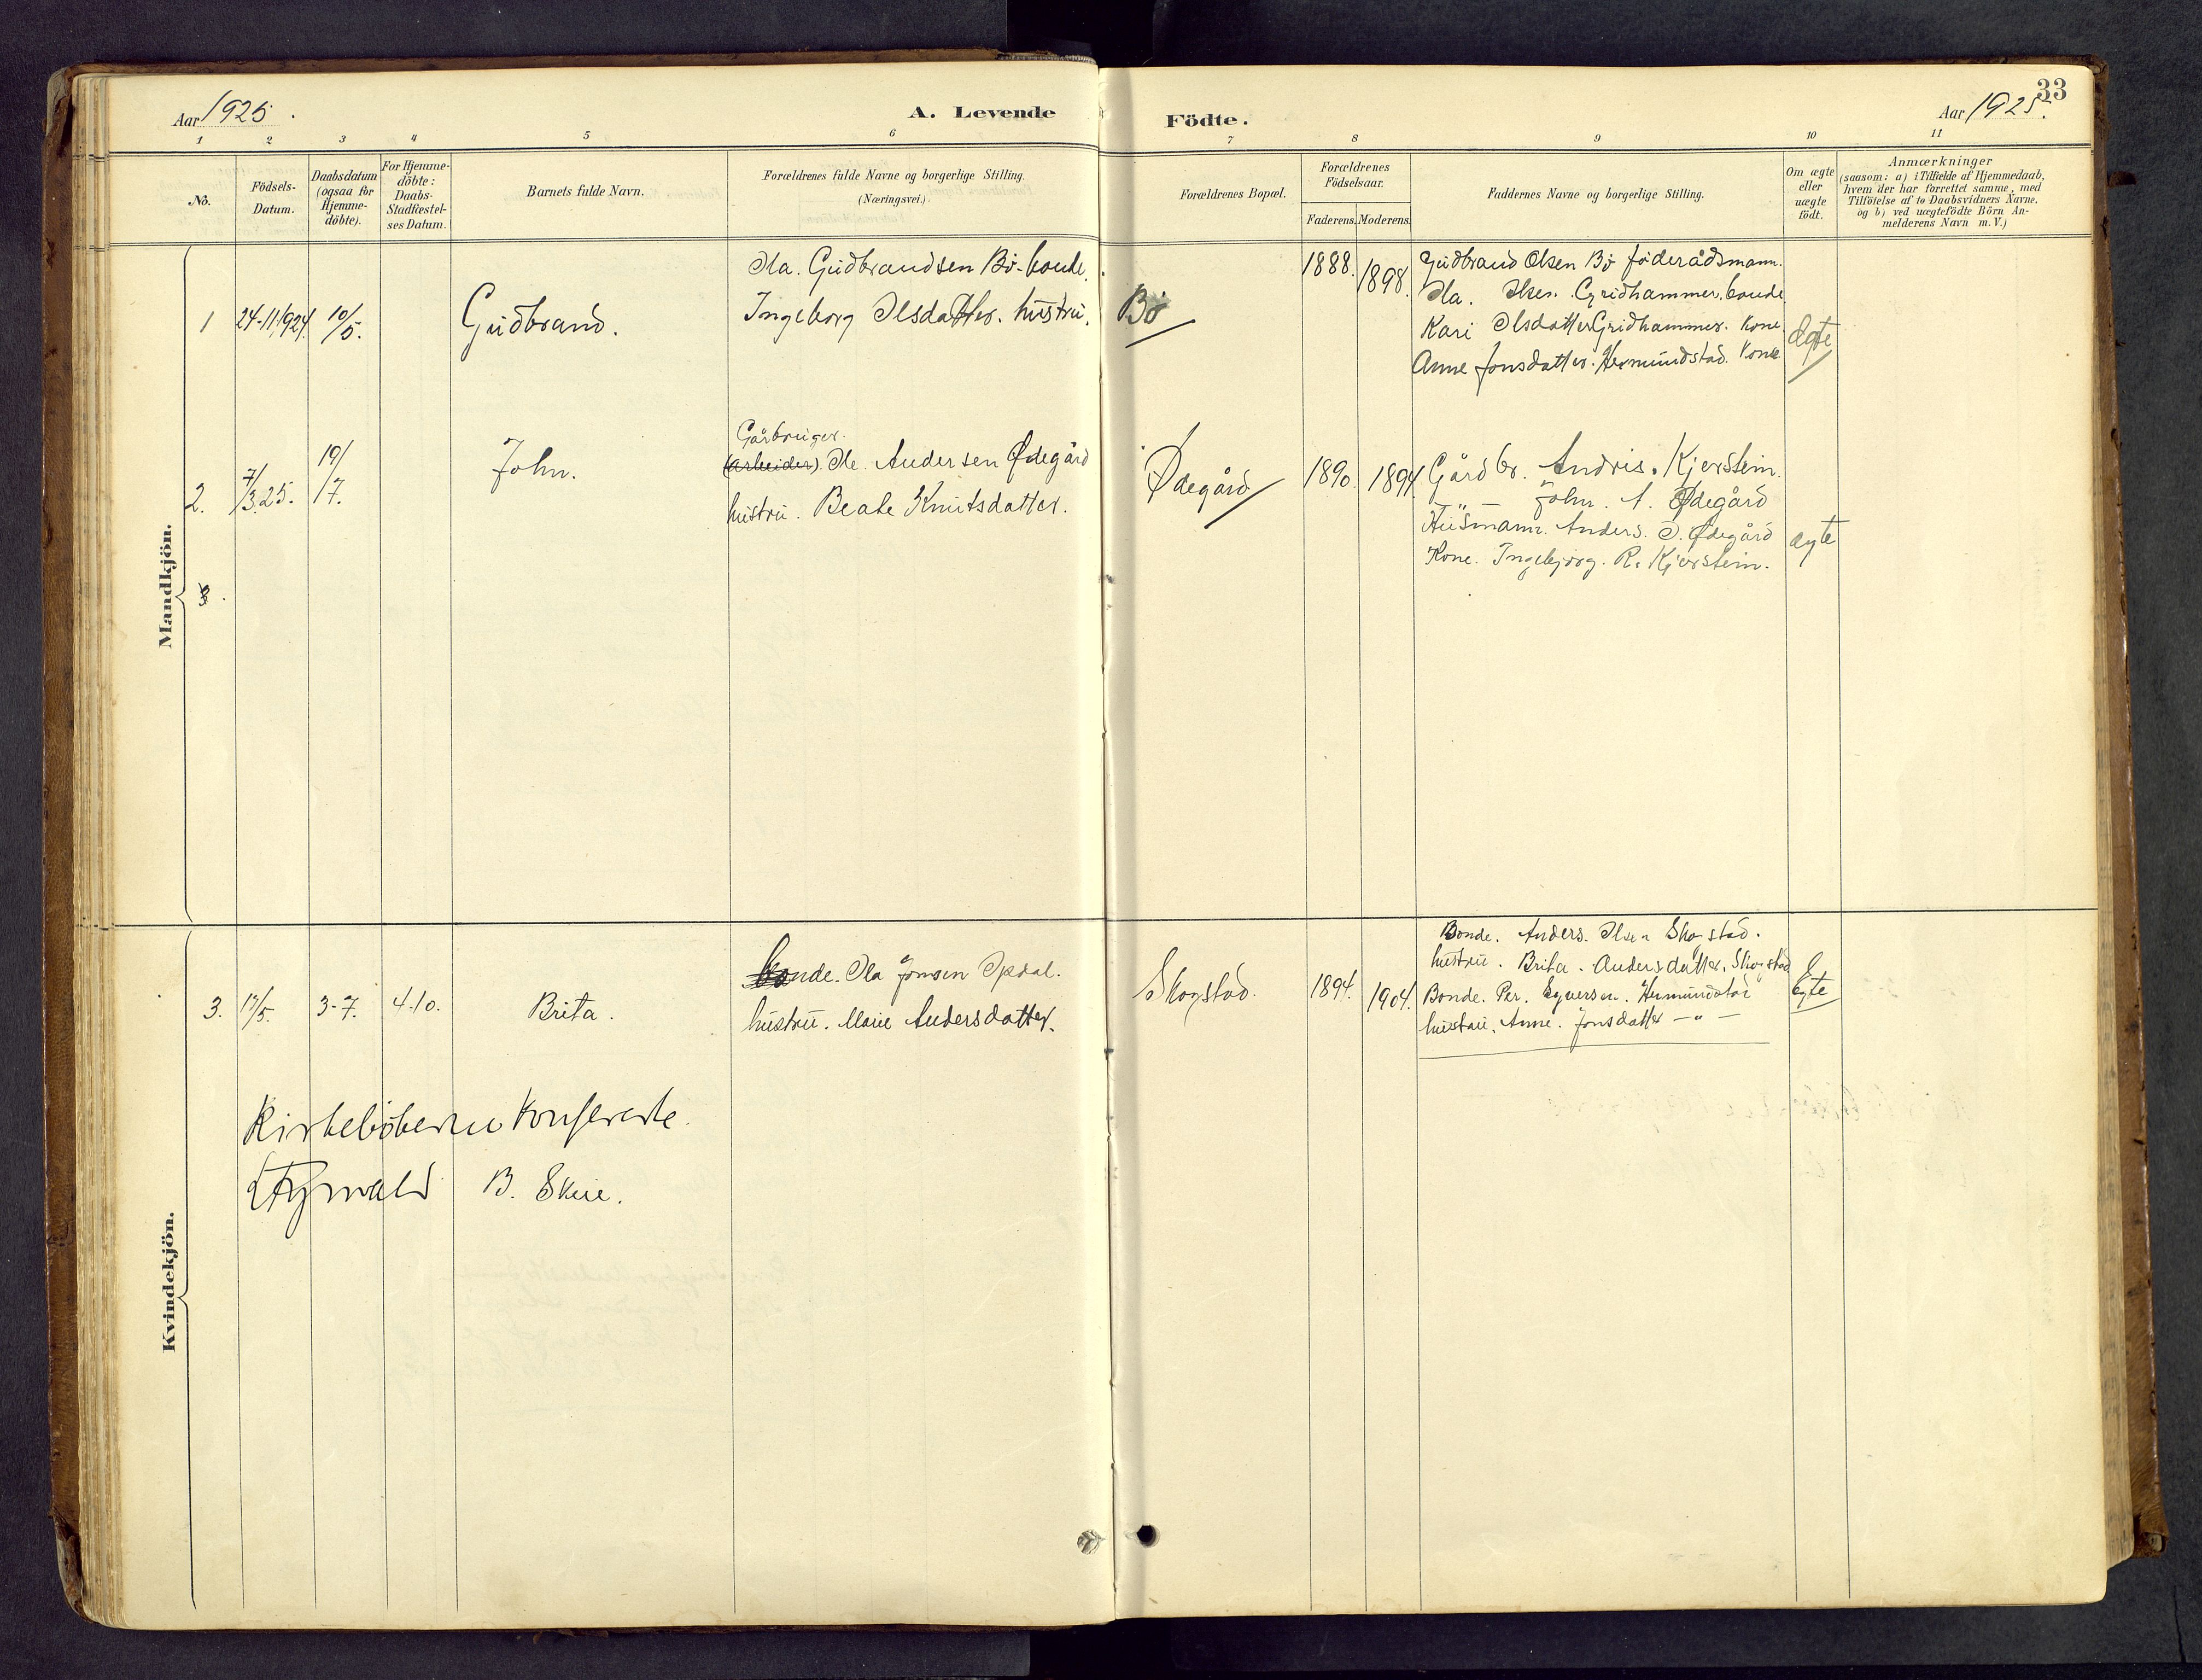 33
Aar 1925.
A. Levende
Födte.
Aar 1925.
1 2 3 4 5 6 7 8 9 10 11
No.
Födsels-
Datum.
Daabsdatum
(ogsaa for
Hjemme-
döbte).
For Hjemme-
döbte:
Daabs-
Stadfæstel-
ses Datum.
Barnets fulde Navn.
Forældrenes fulde Navne og borgerlige Stilling.
(Næringsvei.)
Forældrenes Bopæl.
Forældrenes
Födselsaar.
Faderens. Moderens.
Faddernes Navne og borgerlige Stilling.
Om ægte
eller
uægte
födt.
Anmærkninger
(saasom: a) i Tilfælde af Hjemmedaab,
hvem der har forrettet samme, med
Tilföielse af to Daabsvidners Navne,
og b) ved uægtefödte Börn An-
melderens Navn m. V.)
Mandkjön.
1 24-11-1924. 10/5. Gudbrand.
Ola. Gudbrandsen Bø. bonde.
Ingeborg Olsdatter. hustru.
Bø
1888. 1898.
Gudbrand Olsen Bø føderådsmann.
Ola. Olsen. Gridhammer. bonde
Kari Olsdatter Gridhammer. Kone.
Anne Jonsdatter. Hermundstad. Kone
Ægte
2. 7/3.25. 19/7. John.
Gårbruger.
(arbeider). Ole. Andersen Ødegård
hustru. Beate Knutsdatter.
Ødegård
1890. 1894.
Gårdbr. Andris. Kjerstein.
— " — John. A. Ødegård
Husmann. Anders. O. Ødegård
Kone. Ingebjørg. R. Kjerstein.
ægte
3.
Kvindekjön.
3. 17/5. 3-7. 4.10. Brita.
bonde. Ola Jonsen Opdal.
hustru. Marie Andersdatter.
Skogstad.
1894. 1904.
Bonde. Anders. Olsen Skogstad.
hustru. Brita. Andersdatter. Skogstad
Bonde. Per. Syversen. Hermundstad
hustru. Anne. Jonsdatter — " —
Egte
Kirkebøkerne Konfererte.
B. Skeie.